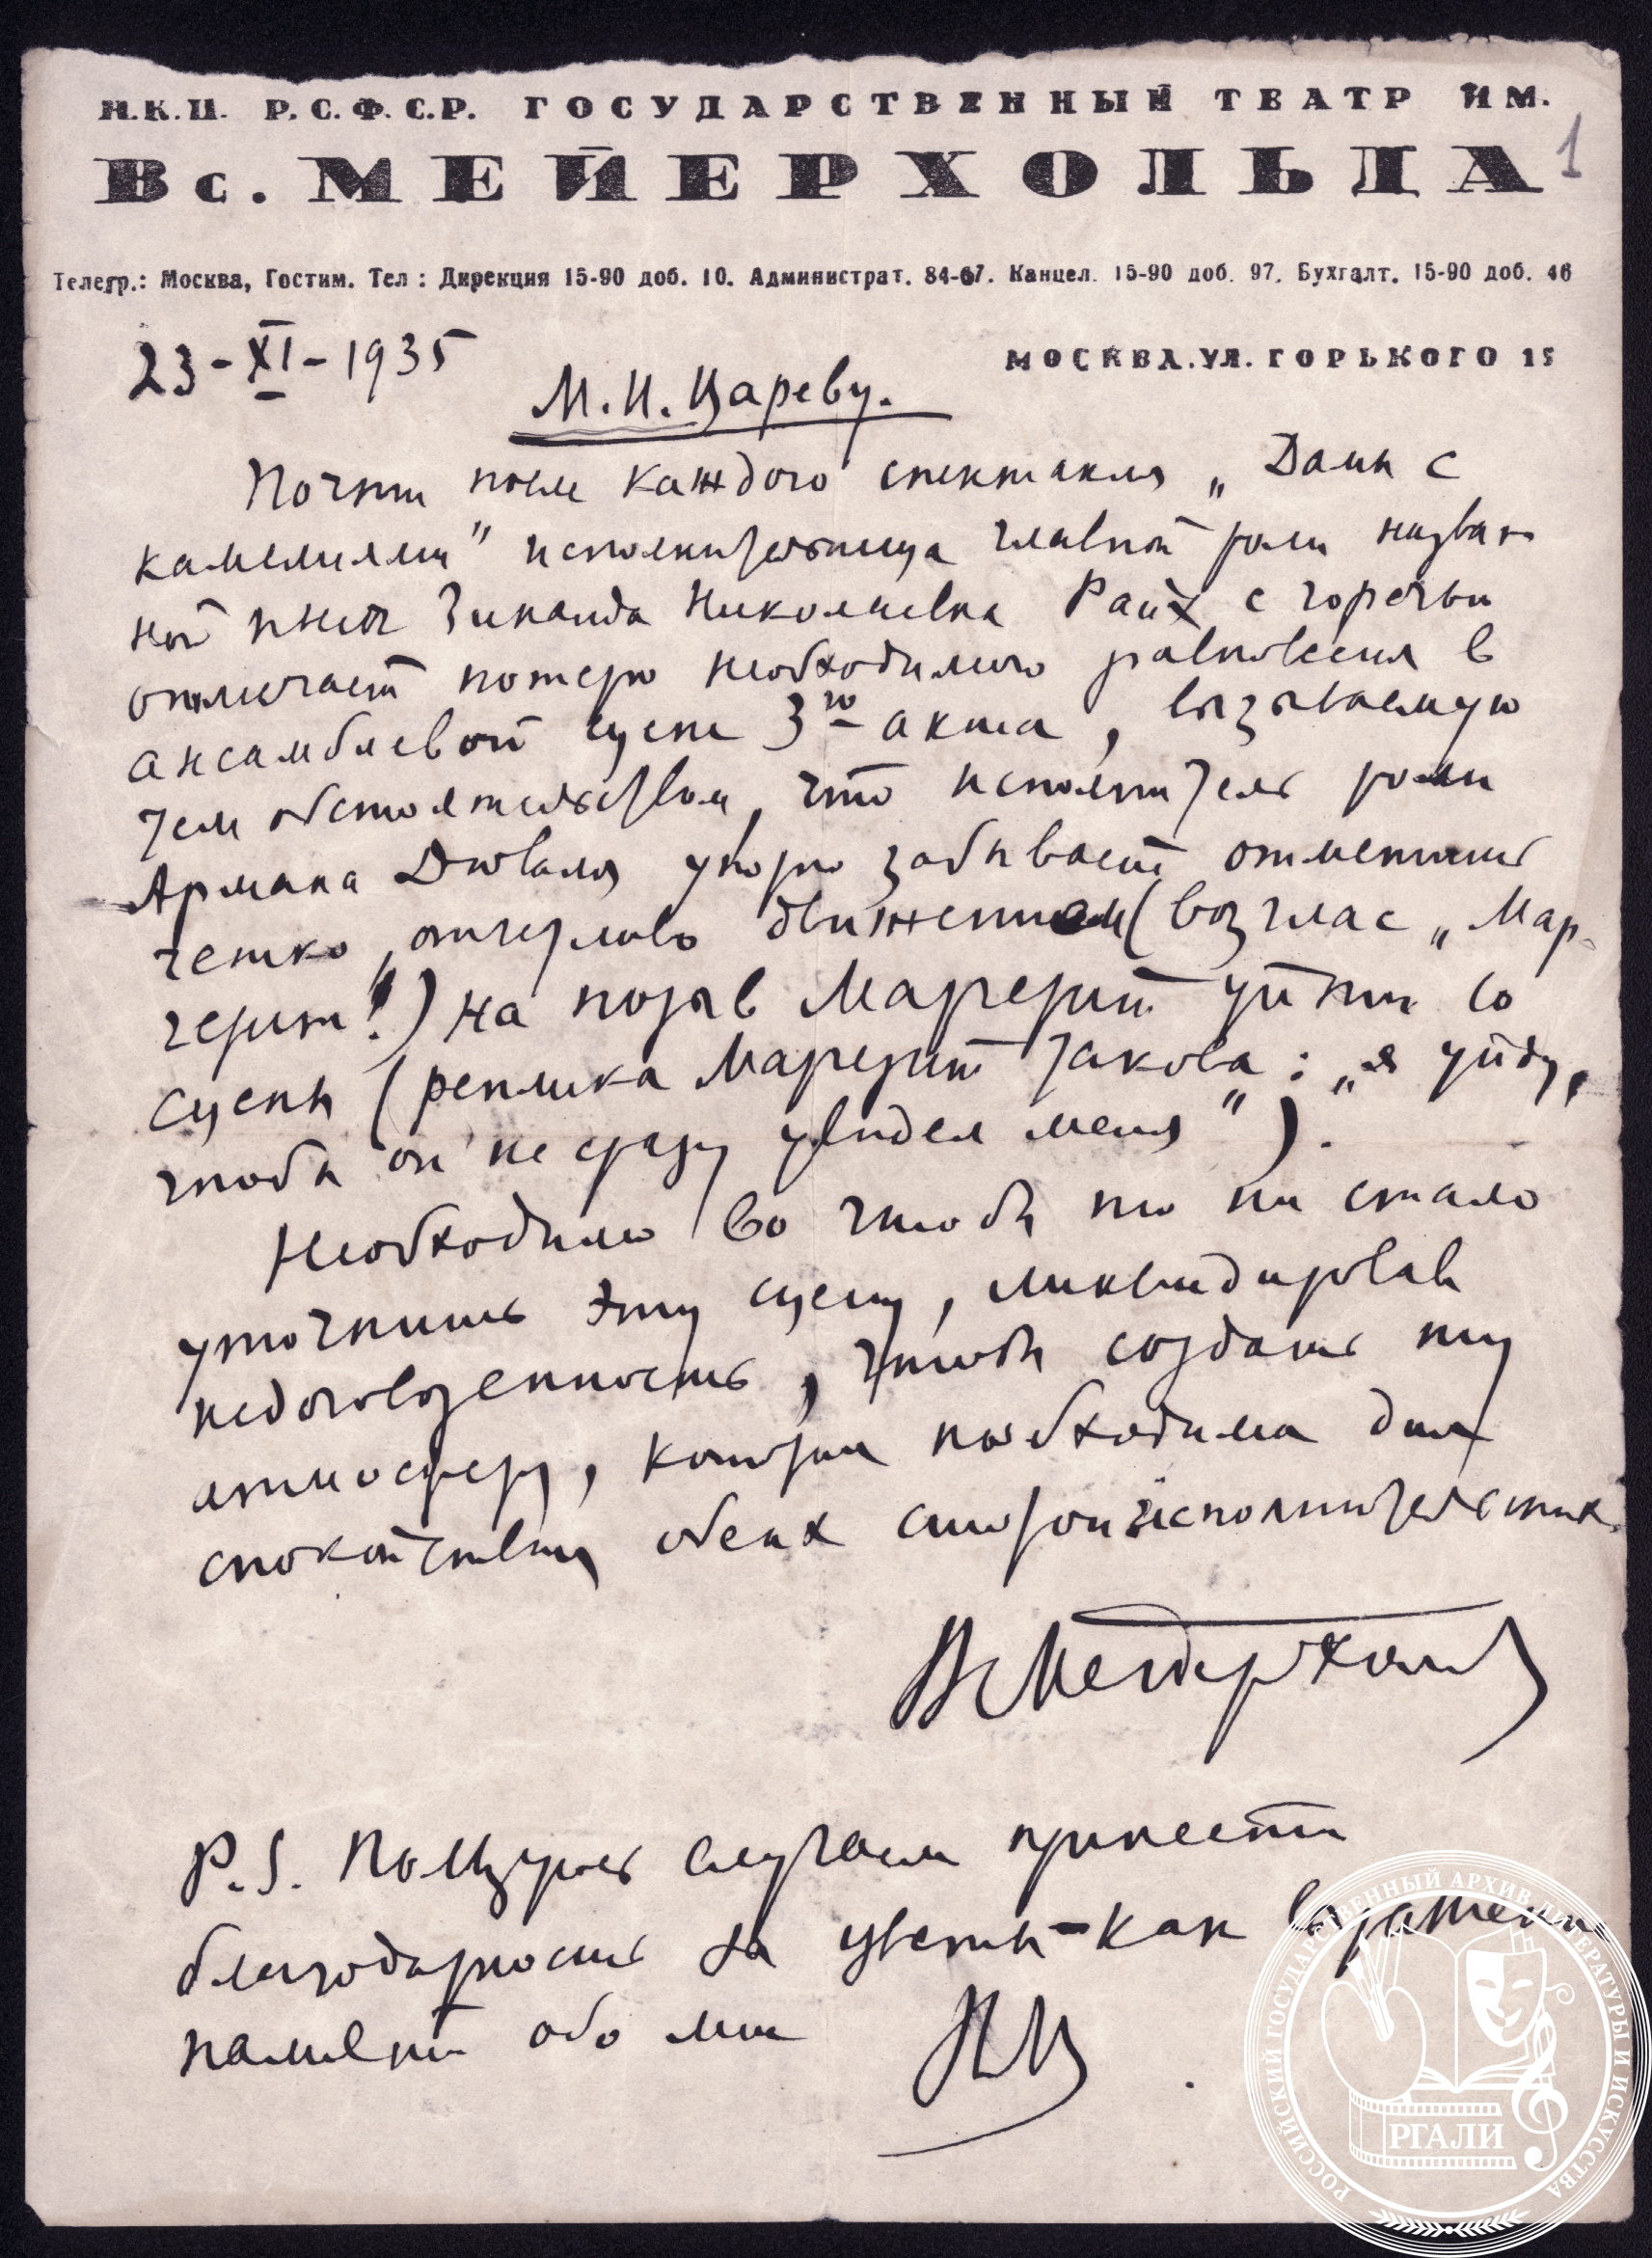 Н.К.П. Р.С.Ф.С.Р. ГОСУДАРСТВЕННЫЙ ТЕАТР ИМ.
Вс. МЕЙЕРХОЛЬДА
1
Телегр.: Москва, Гостим. Тел: Дирекция 15-90 доб. 10. Администрат. 84-67. Канцел. 15-90 доб. 97. Бухгалт. 15-90 доб. 46
МОСКВА.УЛ.ГОРЬКОГО 15
23-XI-1935
М.И.Цареву.
Почти после каждого спектакля „Дама с
камелиями" исполнительница главной роли назван-
ной пьесы Зинаида Николаевна Райх с горечью
отмечает потерю необходимого равновесия в
ансамблевой сцене 3го акта, вызываемую
тем обстоятельством, что исполнитель роли
Армана Дюваля упорно забывает отметить
четко, отчетливо движением (возглас „Мар-
герит!") на позыв Маргерит уйти со
сцены (реплика Маргерит такова: „я уйду,
чтобы он не сразу увидел меня").
Необходимо во чтобы то ни стало
уточнить эту сцену, ликвидировав
недоговоренность, чтобы создать ту
атмосферу, которая необходима для
спокойствия обеих сторон исполнительских.
Вс Мейерхольд
P.S. Пользуюсь случаем принести
благодарность за цветы - как выражение
памяти обо мне
ВМ
РОССИЙСКИЙ ГОСУДАРСТВЕННЫЙ АРХИВ ЛИТЕРАТУРЫ И ИСКУССТВА
РГАЛИ